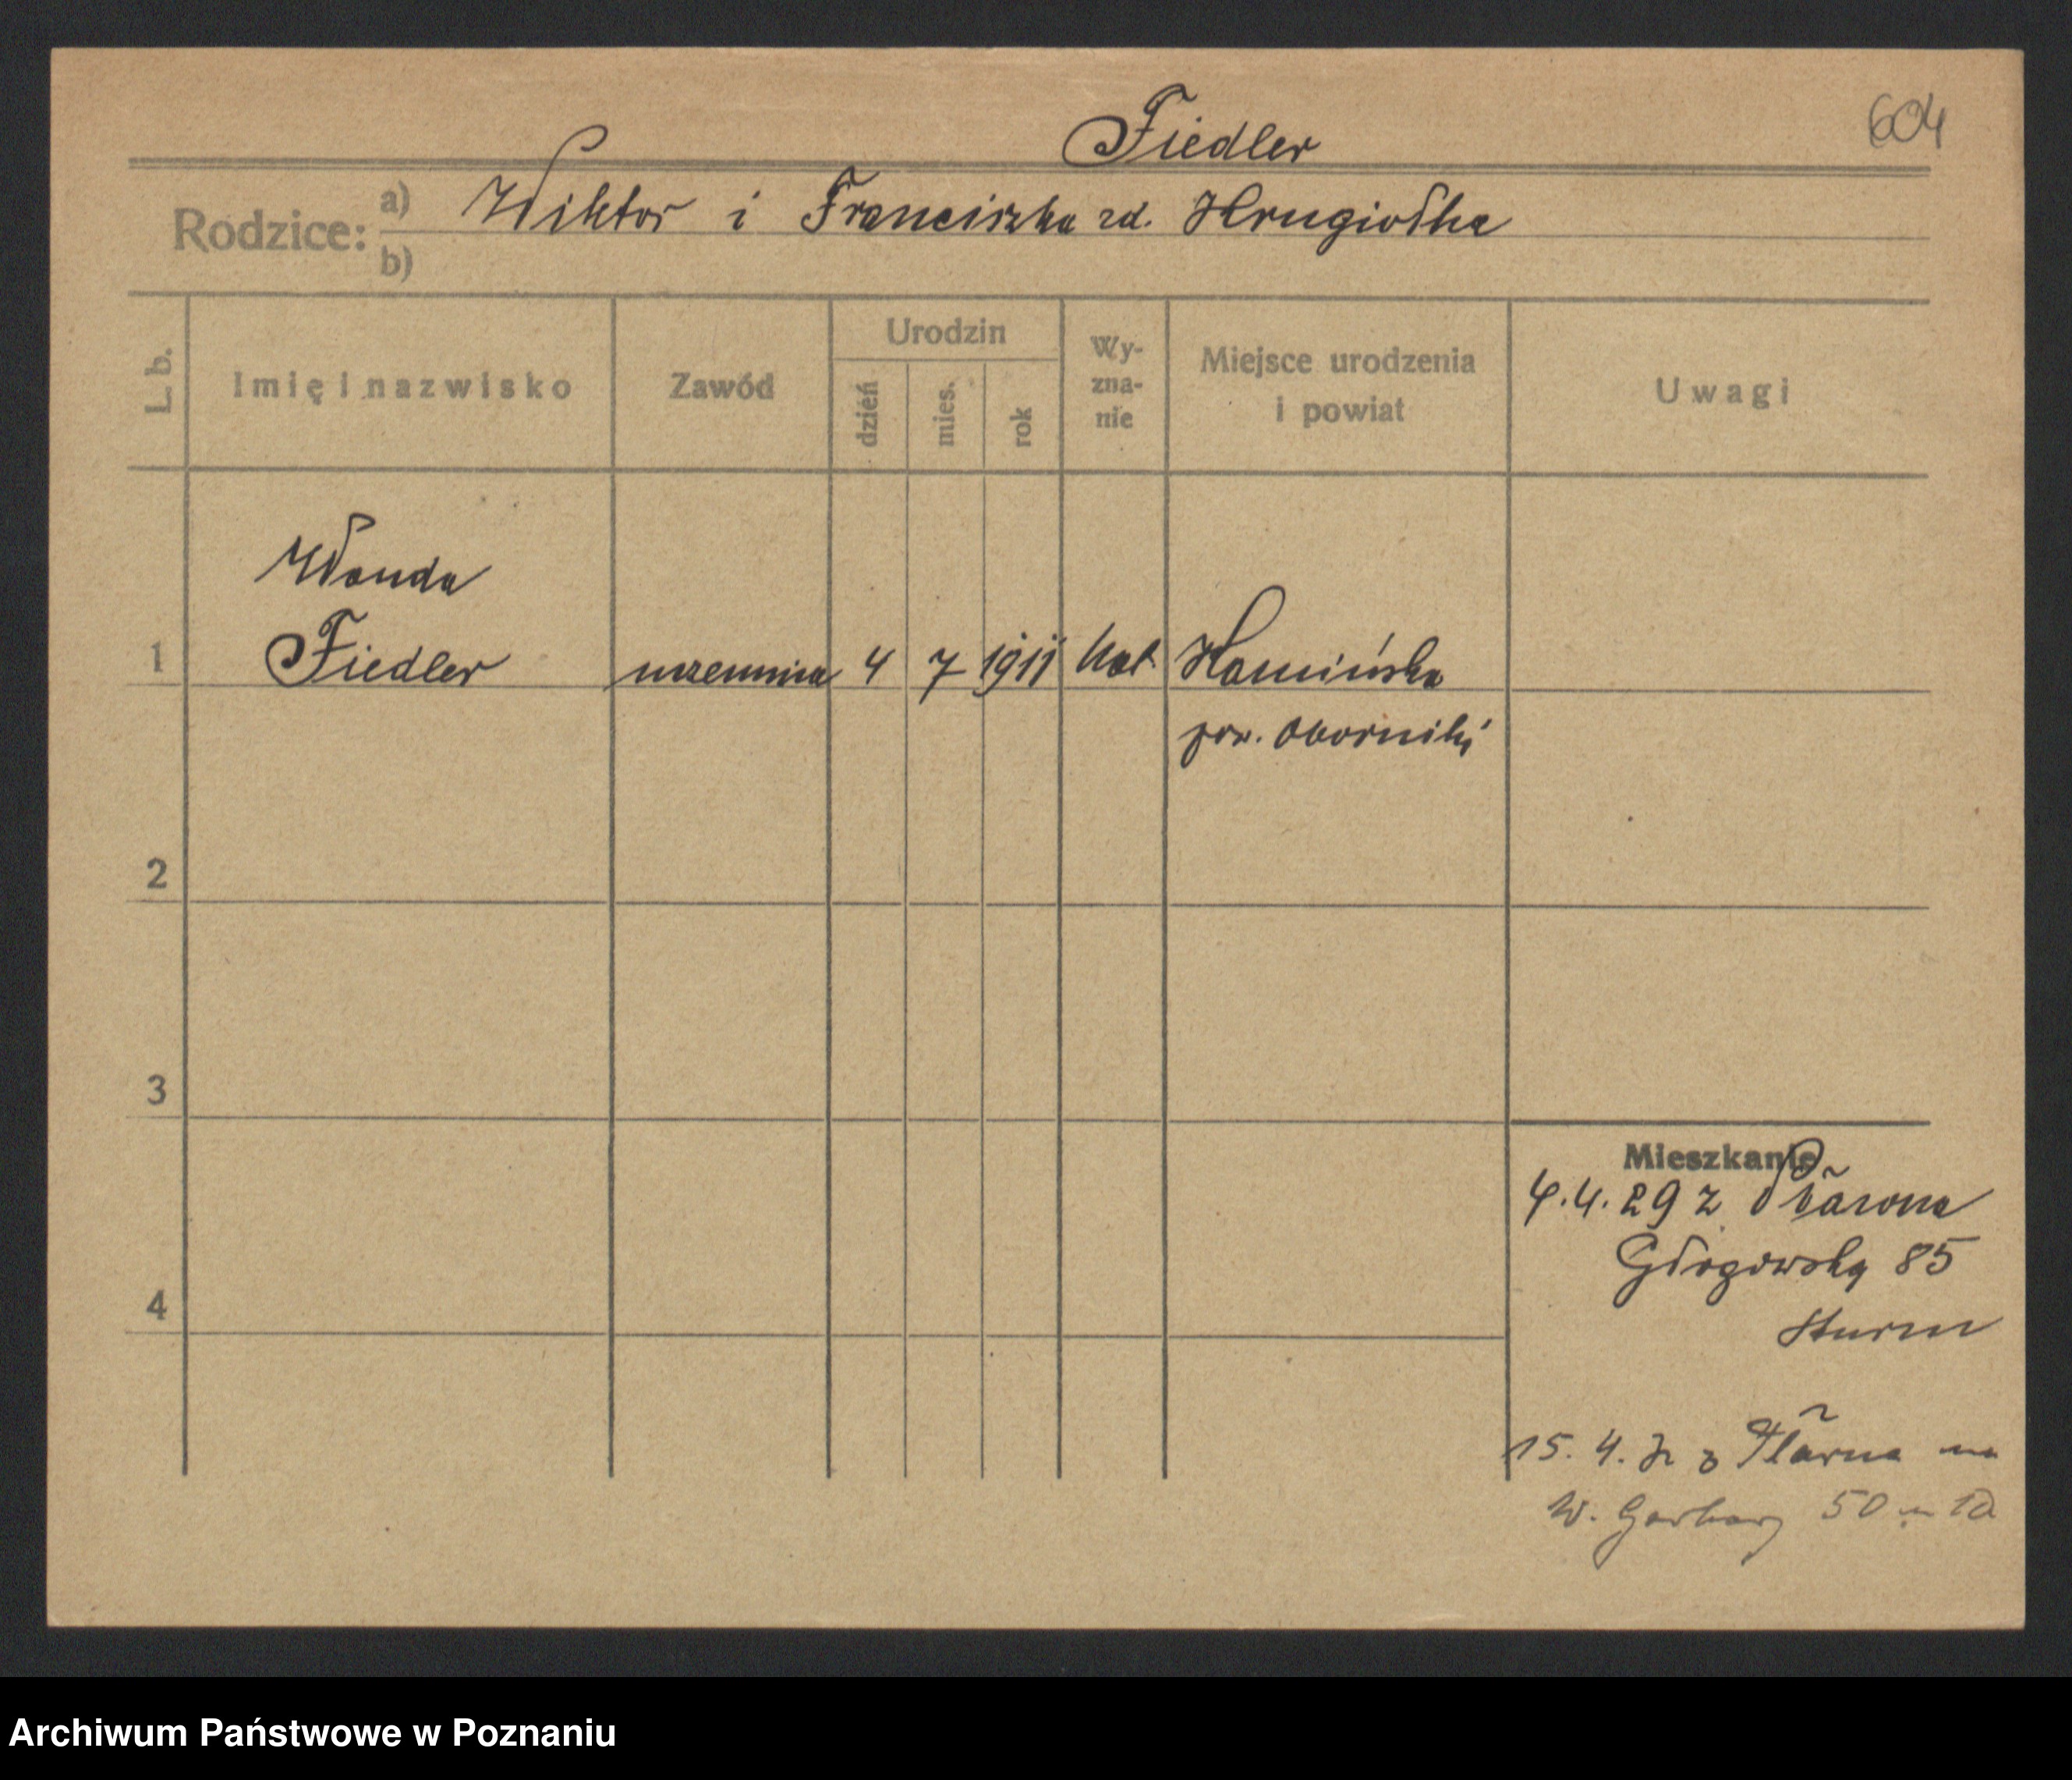 Fiedler
604
Rodzice: a) Wiktor i Franciszka zd. Krugiołka
b)
L. b.
Imię i nazwisko
Zawód
Urodzin
dzień
mies.
rok
Wy-
zna-
nie
Miejsce urodzenia
i powiat
Uwagi
Wanda
1 Fiedler uczennica 4 7 1911 kat Kamińska
pow. Oborniki
2
3
4
Mieszkanie
4.4.29 z
Głogowska 85
Sturm
15. 4. na
W. Garbary 50 m 10
Archiwum Państwowe w Poznaniu